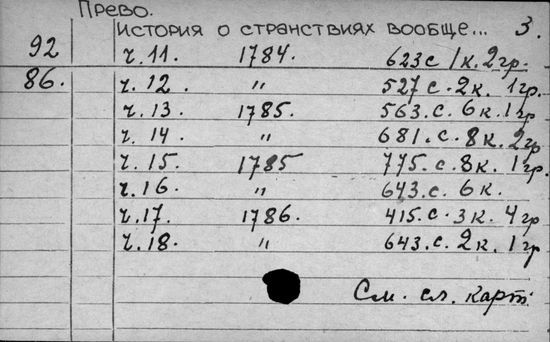 Прево.
История о странствиях вообще... 3.
92 ч. 11. 1784. 623 с 1 к. 2 гр.
86. ч. 12. " 527 с. 2 к. 1 гр.
ч. 13. 1785. 563. с. 6 к. 1 гр
ч. 14. " 681. с. 8 к. 2 гр
ч. 15. 1785 775. с. 8 к. 1 гр.
ч. 16. " 643. с. 6 к.
ч. 17. 1786. 415. с. 3 к. 4 гр
ч. 18. " 643. с. 2 к. 1 гр
См. сл. карт.